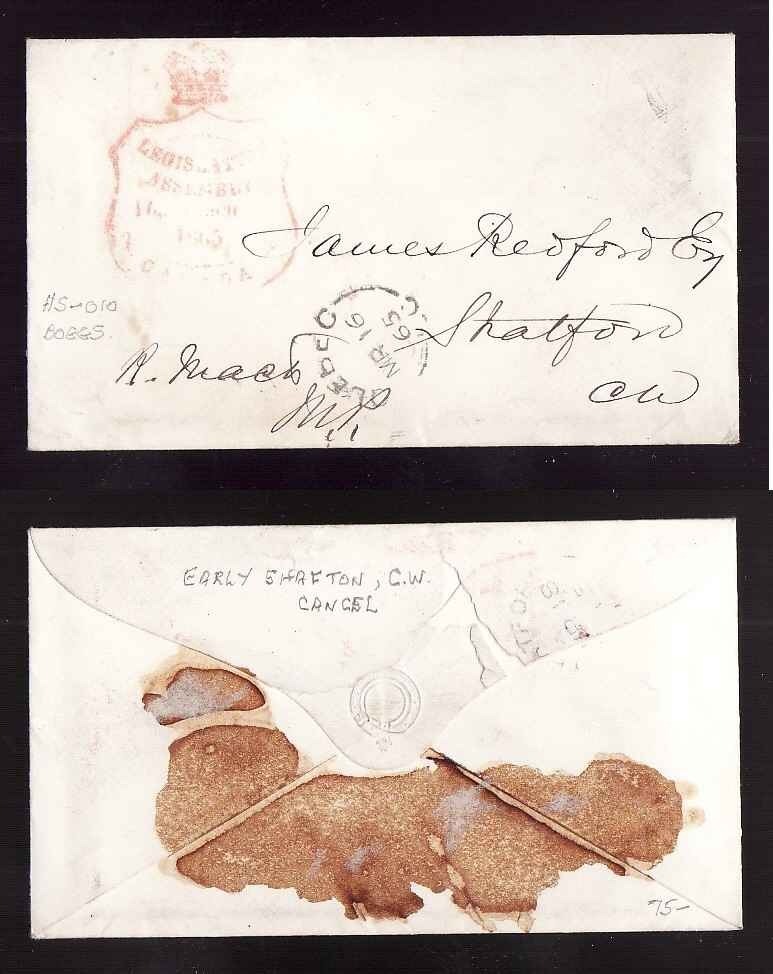 LEGISLATIVE
ASSEMBLY
1865
James Redford Esq
Stratford
CW
HS-010
BOGGS.
QUEBEC
MR 16
65
R. Mack
MP
EARLY SHAFTON, C.W.
CANCEL
75-